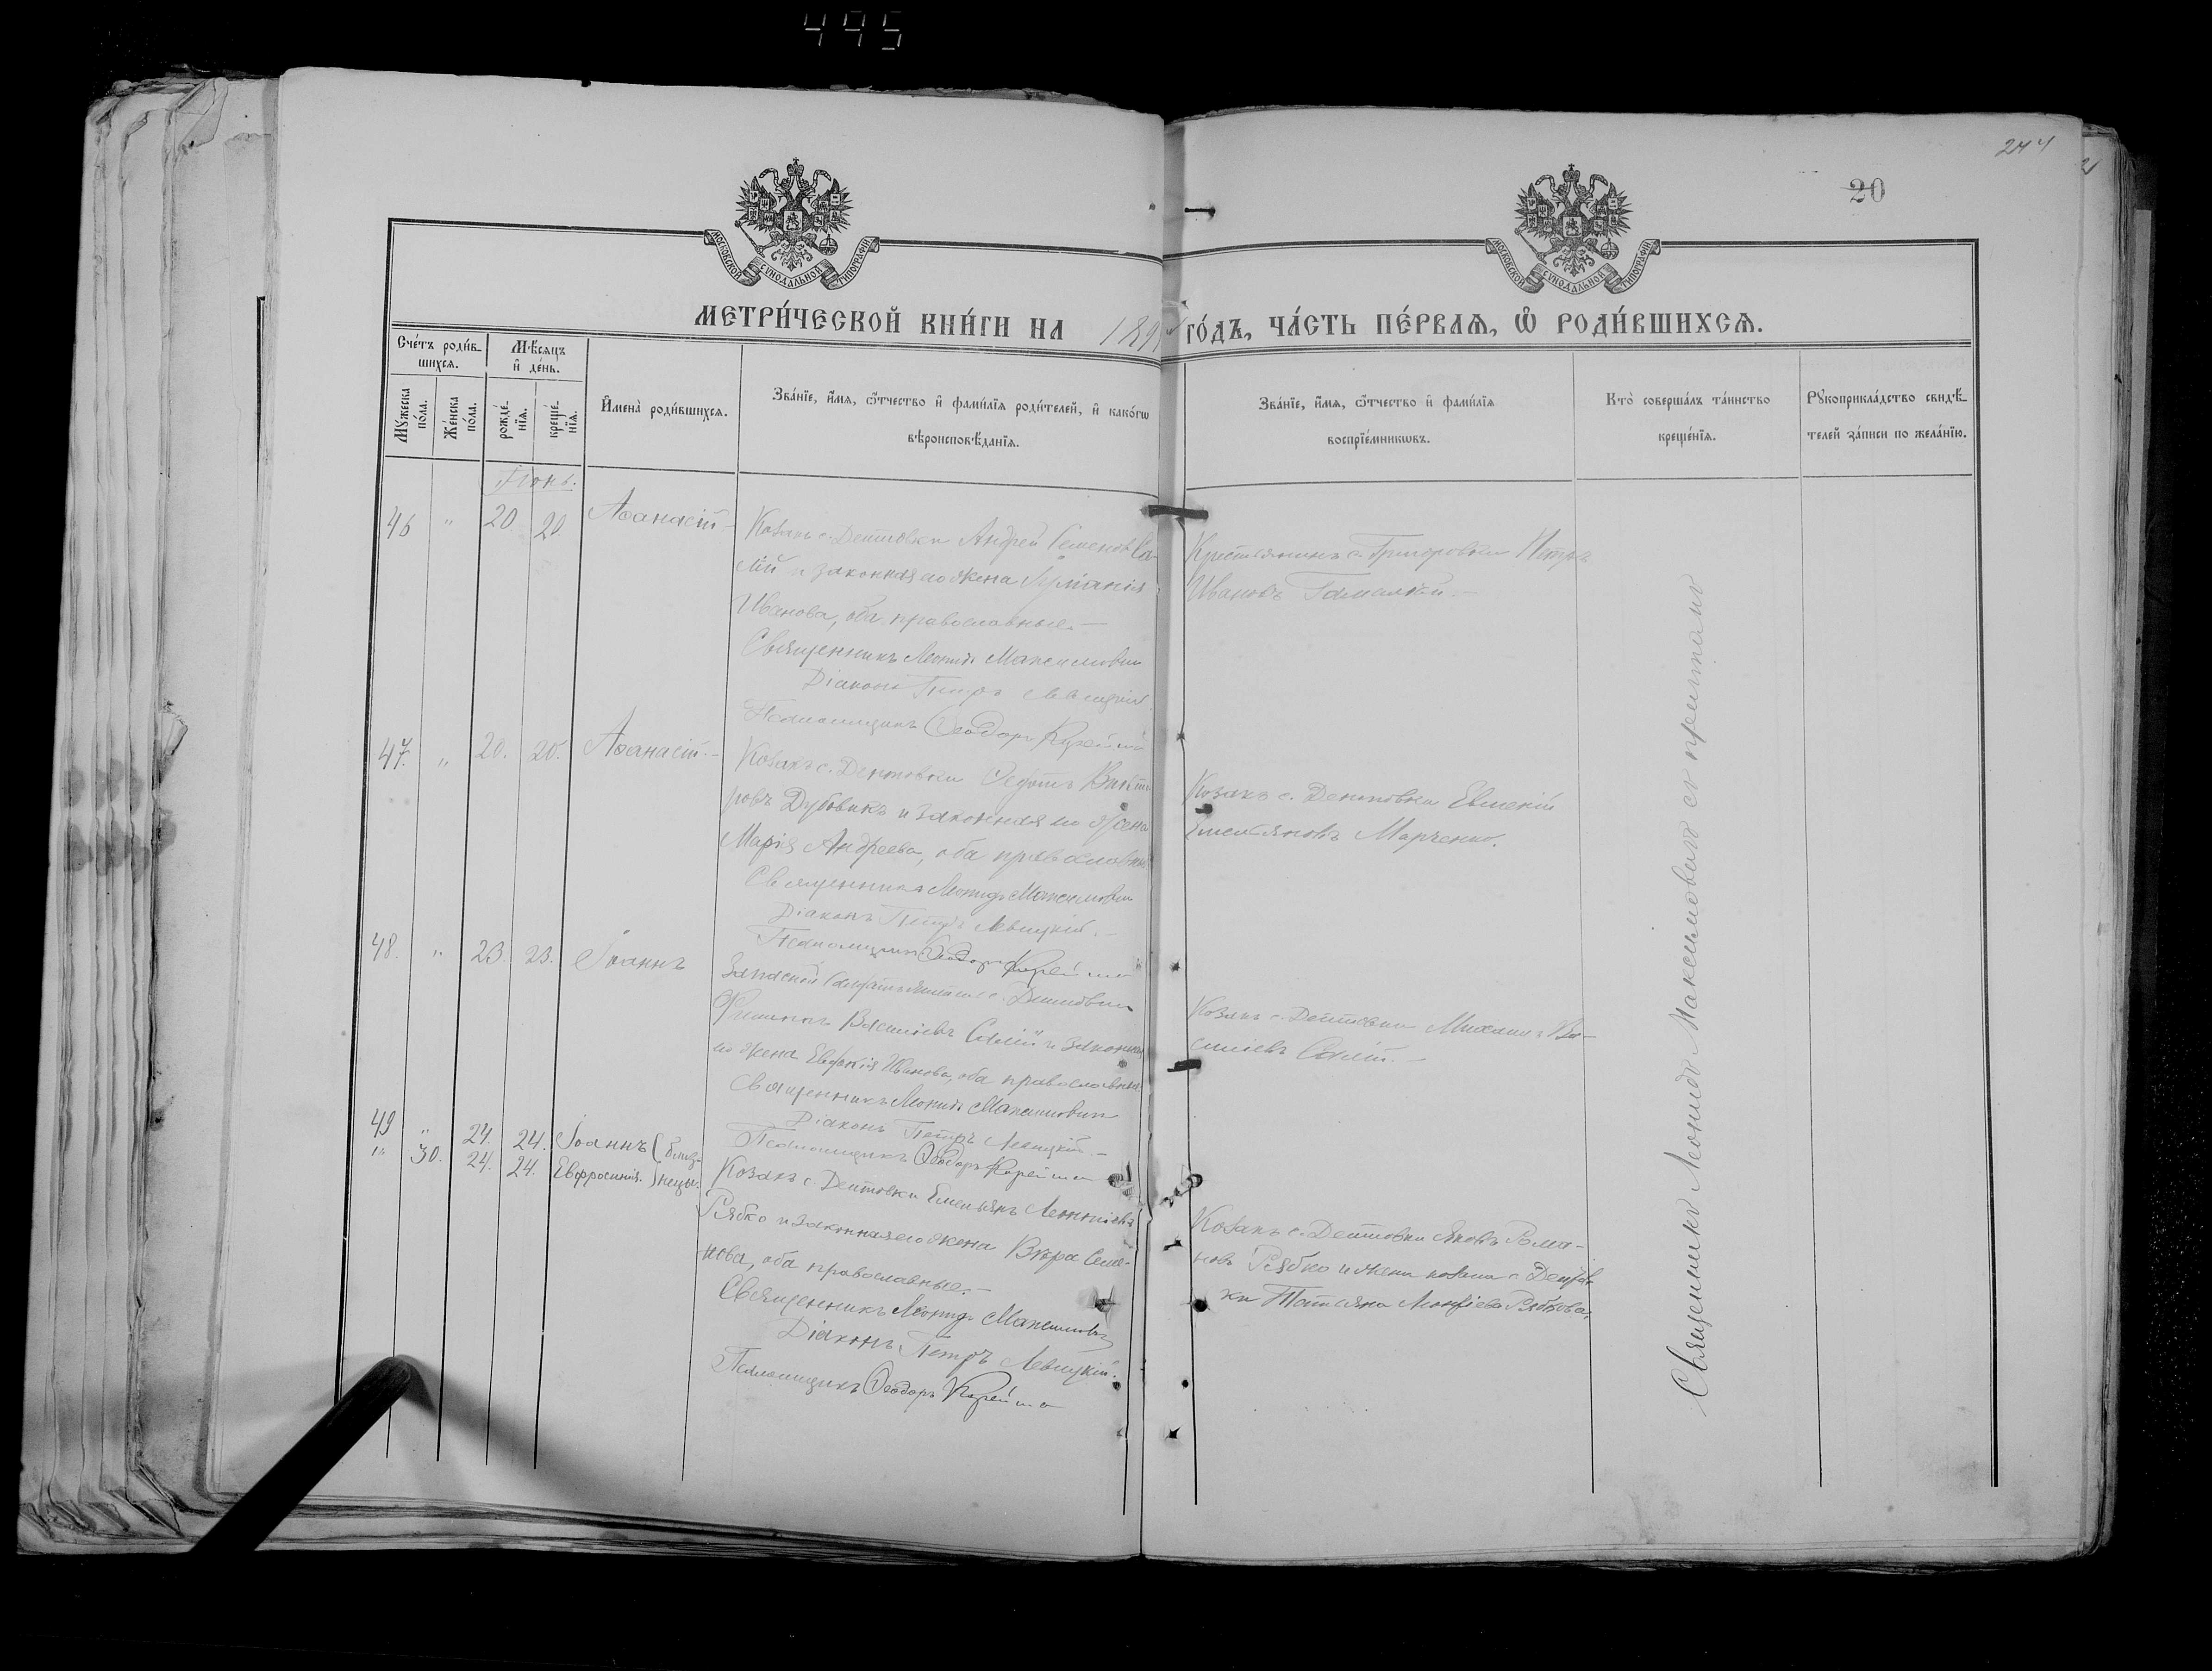 495
244
20
МОСКОВСКОЙ СѴНОДАЛЬНОЙ ТИПОГРАФІИ
МОСКОВСКОЙ СѴНОДАЛЬНОЙ ТИПОГРАФІИ
МЕТРИ́ЧЕСКОЙ КНИ́ГИ НА 189 ГО́ДЪ, ЧА́СТЬ ПЕ́РВАѦ, Ѽ РОДИ́ВШИХСѦ.
Сче́тъ роди́в-
шихсѧ.
Мꙋ́жеска по́ла.
Же́нска по́ла.
Мѣ́сѧцъ и҆ де́нь.
рожде́-
нїѧ.
креще́-
нїѧ.
И҆мена̀ роди́вшихсѧ.
Зва́нїе, и҆́мѧ, ѻ҆́тчество и҆ фами́лїѧ роди́телей, и҆ како́гѡ
вѣроисповѣ́данїѧ.
Зва́нїе, и҆́мѧ, ѻ҆́тчество и҆ фами́лїѧ
воспрїе́мникѡвъ.
Кто̀ соверша́лъ та́инство
креще́нїѧ.
Рꙋкоприкла́дство свидѣ́-
телей за́писи по жела́нїю.
Іюнь.
46 " 20 20 Аѳанасій
Козакъ с. Дептовки Андрей Семеновъ Са-
лій и законная его жена
Иванова, оба православные.
Священникъ Леонидъ Максимовичъ
Діаконъ Петръ Левицкій.
Псаломщикъ Ѳеодоръ
Крестьянинъ с. Григоровки Петръ
Ивановъ
47. " 20. 20. Аѳанасій.
Козакъ с. Дептовки Ѳедотъ Викто-
ровъ Дубовикъ и законная его жена
Марія Андреева, оба православные
Священникъ Леонидъ Максимовичъ
Діаконъ Петръ Левицкій.
Псаломщикъ Ѳеодоръ
Козакъ с. Дептовки Евменій
Емельяновъ Марченко.
48. " 23. 23. Іоаннъ
Запасной с. Дептовки
Василіевъ Салій и законная
его жена Иванова, оба православные
Священникъ Леонидъ Максимовичъ
Діаконъ Петръ Левицкій.
Псаломщикъ Ѳеодоръ
Козакъ с. Дептовки Михаилъ Ва-
силіевъ Салій.
49 " 24. 24. Іоаннъ близ-
" 30. 24. 24. Евфросинія. нецы.
Козакъ с. Дептовки Емельянъ Леонтіевъ
Рябко и законная его жена Вѣра Семе-
нова, оба православные.
Священникъ Леонидъ Максимовичъ
Діаконъ Петръ Левицкій.
Псаломщикъ Ѳеодоръ
Козакъ с. Дептовки Яковъ Рома-
новъ Рябко и жена козака с. Дептов-
ки Татіяна Леонтіева Рябкова.
Священникъ Леонидъ Максимовичъ съ причтомъ